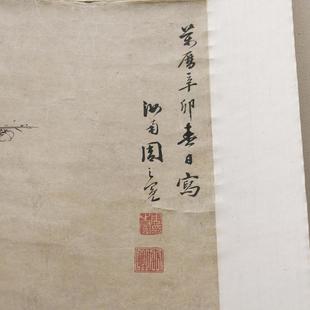 萬曆辛卯春日寫
汝南周之冕